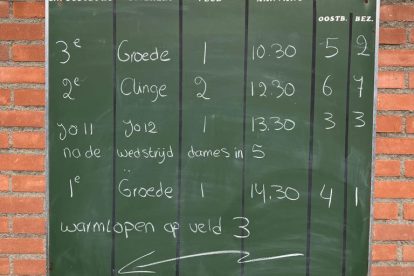 OOSTB. BEZ.
3e Groede 1 10.30 5 2
2e Clinge 2 12.30 6 7
JO11 JO12 1 13.30 3 3
na de wedstrijd dames in 5
1e Groede 1 14.30 4 1
warmlopen op veld 3